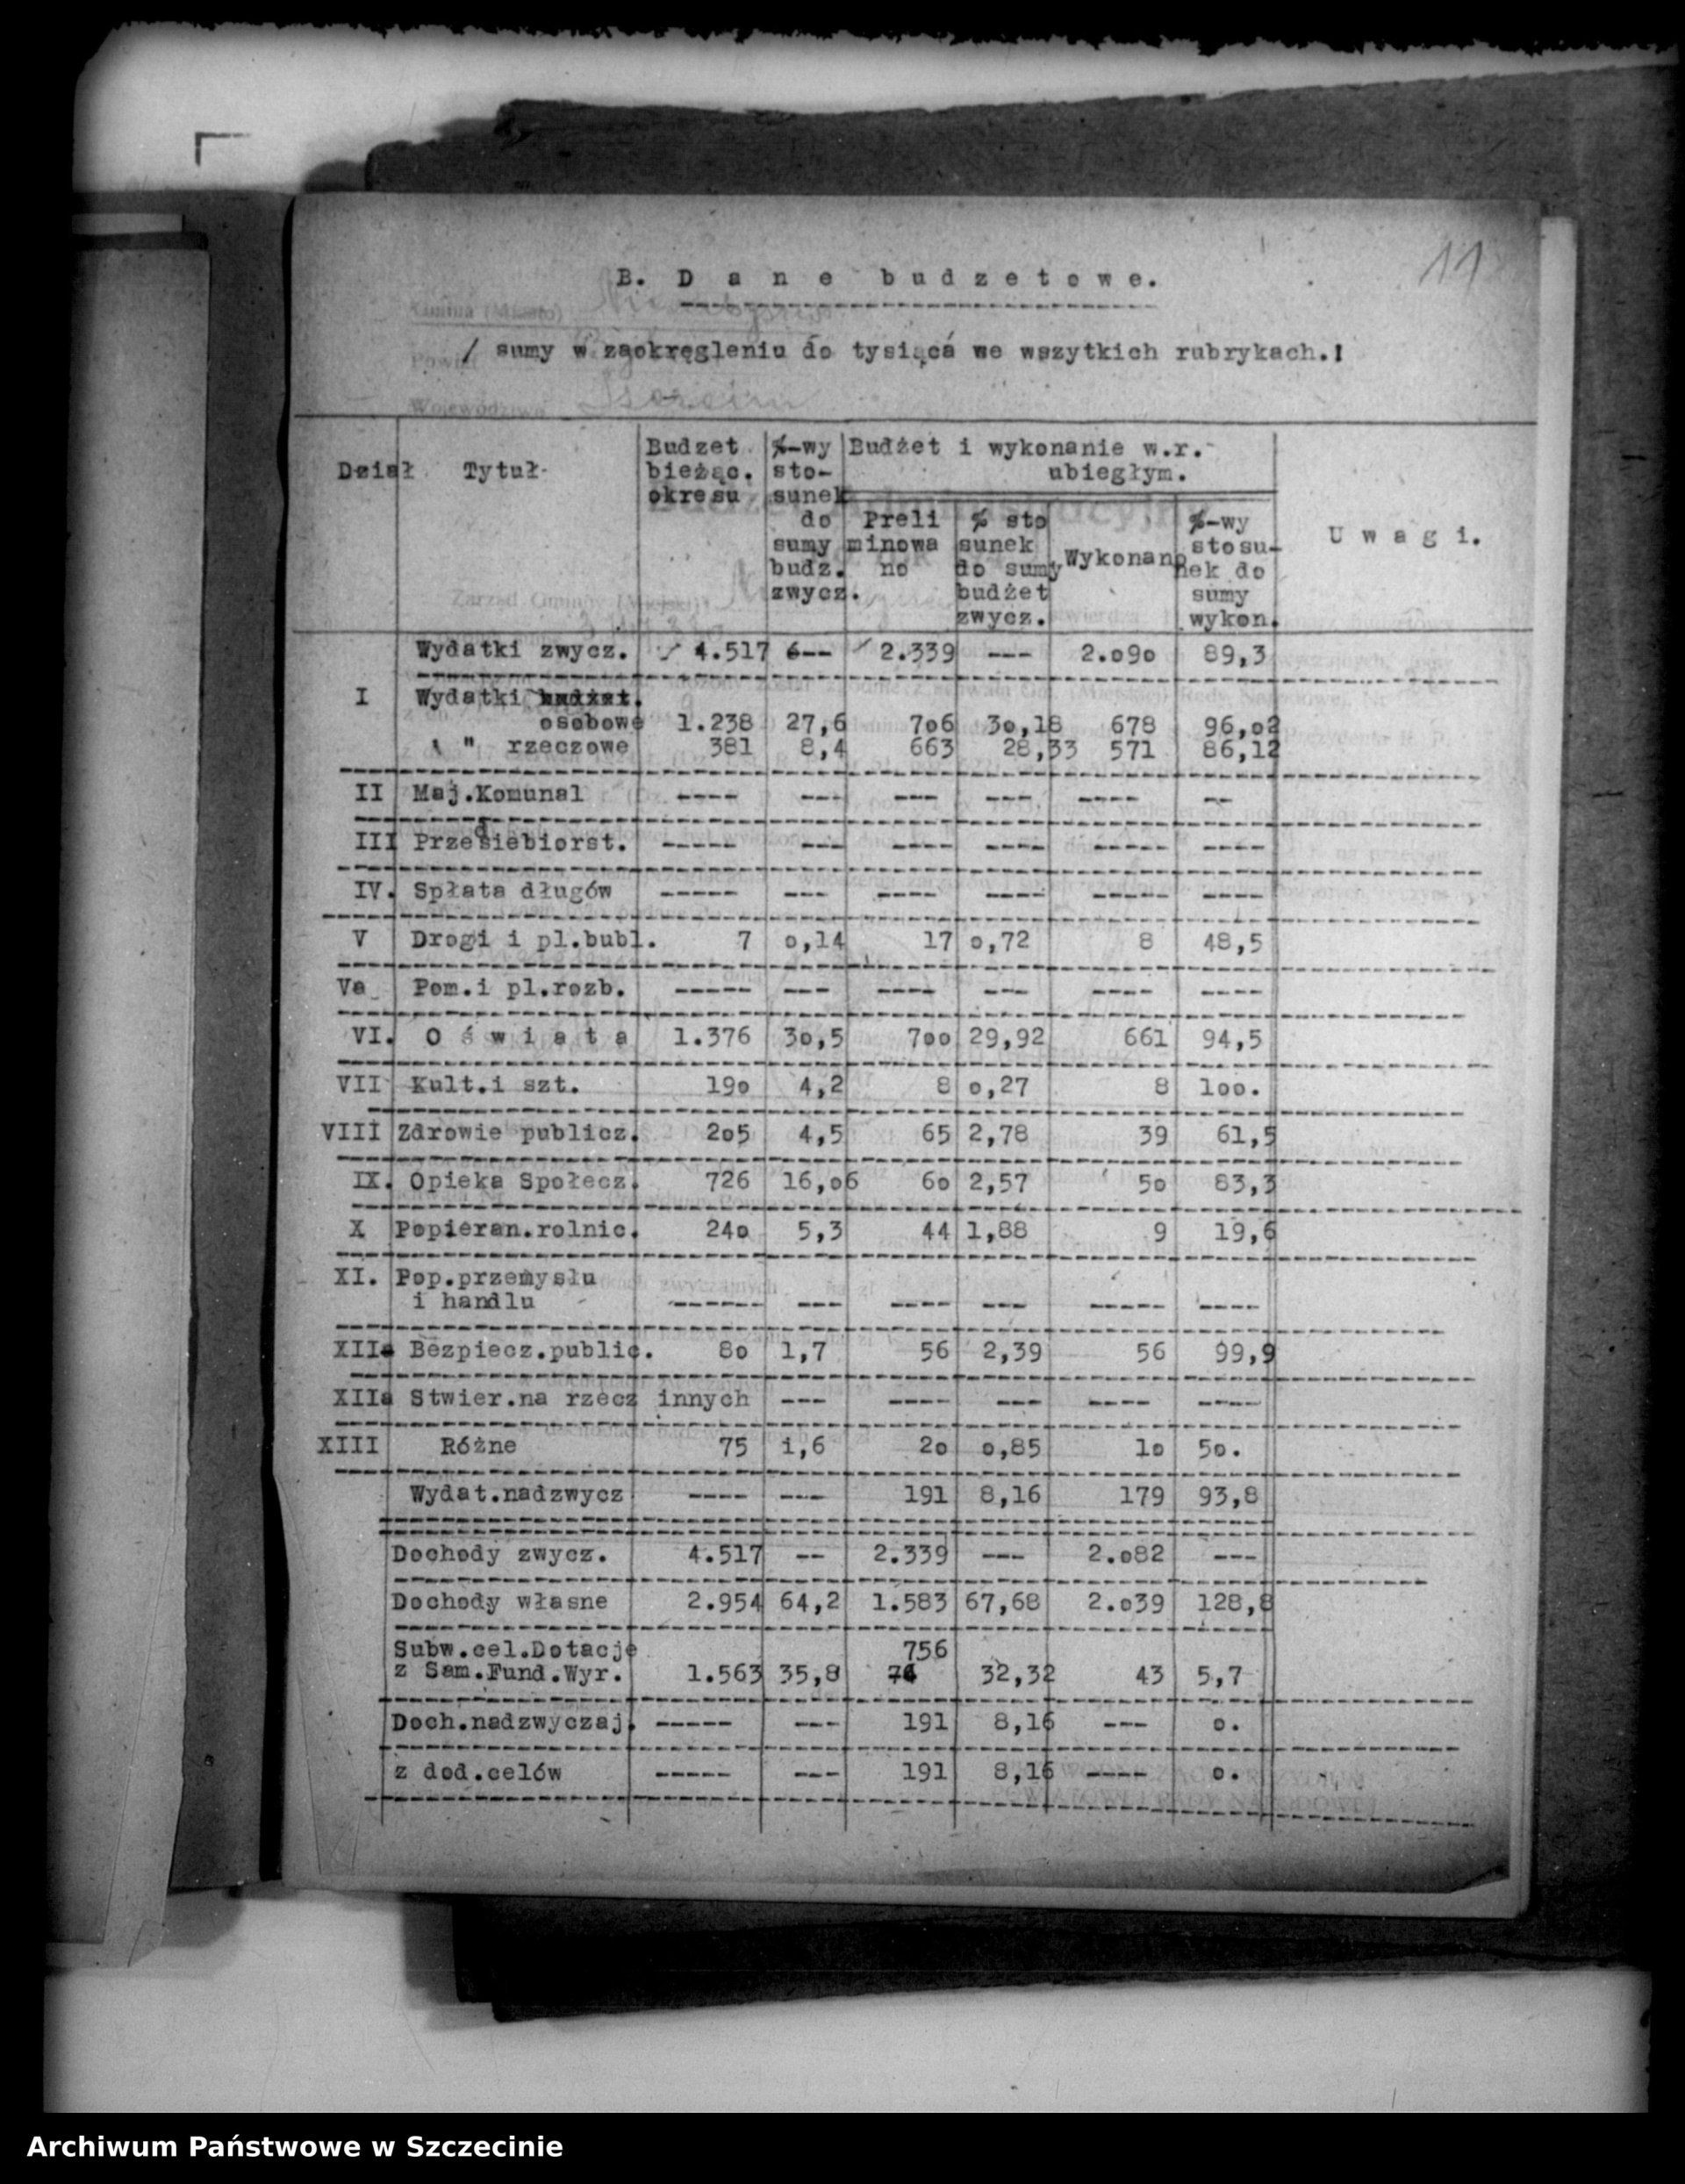 11
B. D a n e b u d z e t o w e.
/ sumy w zaokręgleniu do tysiącá we wszytkich rubrykach.!
Dział Tytuł
Budzet bieżąc. okresu
%-wy sto- sunek do sumy budz. zwycz.
Budżet i wykonanie w.r. ubiegłym.
Preli minowa no
% sto sunek do sumy budżet zwycz.
Wykonano
%-wy stosu- nek do sumy wykon.
U w a g i.
Wydatki zwycz. 4.517 --- 2.339 --- 2.o9o 89,3
I Wydatki budżet.
osobowe 1.238 27,6 7o6 3o,18 678 96,o2
" rzeczowe 381 8,4 663 28,33 571 86,12
II Maj.Komunal ---- --- --- --- ---- --
III Przedsiebiorst. ----- --- ---- ---- ----- ----
IV. Spłata długów ----- --- ---- ---- ----- ----
V Drogi i pl.bubl. 7 o,14 17 o,72 8 48,5
Va Pom.i pl.rozb. ----- --- ---- --- ---- ----
VI. O ś w i a t a 1.376 3o,5 7oo 29,92 661 94,5
VII Kult.i szt. 19o 4,2 8 o,27 8 loo.
VIII Zdrowie publicz. 2o5 4,5 65 2,78 39 61,5
IX. Opieka Społecz. 726 16,o6 6o 2,57 5o 83,3
X Popieran.rolnic. 24o 5,3 44 1,88 9 19,6
XI. Pop.przemysłu
i handlu ------ --- ---- --- ----- ----
XIIa Bezpiecz.public. 8o 1,7 56 2,39 56 99,9
XIIa Stwier.na rzecz innych --- ---- --- ---- ----
XIII Różne 75 i,6 2o o,85 1o 5o.
Wydat.nadzwycz ---- --- 191 8,16 179 93,8
Dochody zwycz. 4.517 -- 2.339 --- 2.o82 ---
Dochody własne 2.954 64,2 1.583 67,68 2.o39 128,8
Subw.cel.Dotacje 756
z Sam.Fund.Wyr. 1.563 35,8 32,32 43 5,7
Doch.nadzwyczaj. ----- --- 191 8,16 --- o.
z dod.celów ----- --- 191 8,16 ---- o.
Archiwum Państwowe w Szczecinie